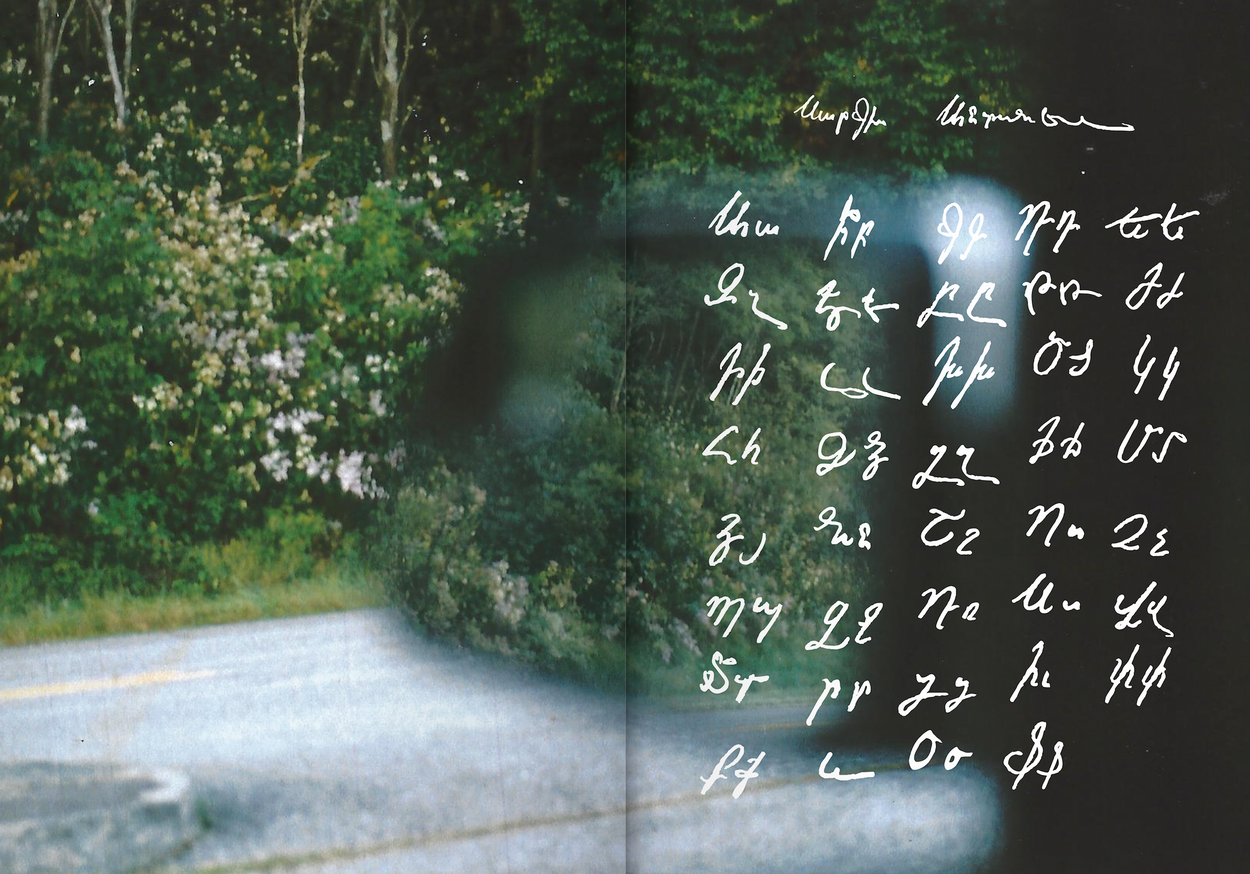 Աա Բբ Գգ Դդ Եե
Զզ Էէ Ըը Թթ Ժժ
Իի Լլ Խխ Ծծ Կկ
Հհ Ձձ Ղղ Ճճ Մմ
Յյ Նն Շշ Ոո Չչ
Պպ Ջջ Ռռ Սս Վվ
Տտ Րր Ցց Ււ Փփ
Քք և Օօ Ֆֆ